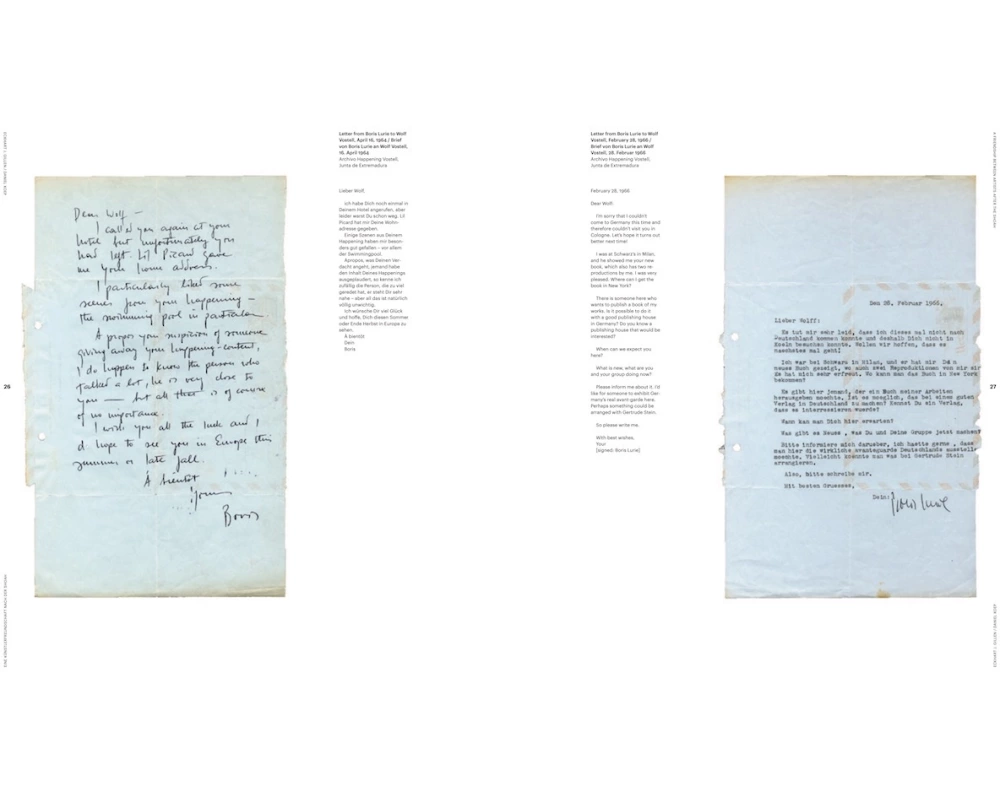 Dear Wolf —
I call'd you again at your
hotel but unfortunately you
had left. Lil Picard gave
me your home address.
I particularly liked some
scenes from your happening —
the swimming pool in particular
A propos your suspicion of someone
giving away your happening-content,
I do happen to know the person who
talked a lot, he is very close to
you — but all that is of course
of no importance.
I wish you all the luck and I
d hope to see you in Europe this
summer or late fall.
A bientot
Yours
Boris
26
Letter from Boris Lurie to Wolf
Vostell, April 16, 1964 / Brief
von Boris Lurie an Wolf Vostell,
16. April 1964
Archivo Happening Vostell,
Junta de Extremadura
Lieber Wolf,
Ich habe Dich noch einmal in
Deinem Hotel angerufen, aber
leider warst Du schon weg. Lil
Picard hat mir Deine Wohn-
adresse gegeben.
Einige Szenen aus Deinem
Happening haben mir beson-
ders gut gefallen – vor allem
der Swimmingpool.
Apropos, was Deinen Ver-
dacht angeht, jemand habe
den Inhalt Deines Happenings
ausgeplaudert, so kenne ich
zufällig die Person, die zu viel
geredet hat, er steht Dir sehr
nahe – aber all das ist natürlich
völlig unwichtig.
Ich wünsche Dir viel Glück
und hoffe, Dich diesen Sommer
oder Ende Herbst in Europa zu
sehen.
À bientôt
Dein
Boris
Letter from Boris Lurie to Wolf
Vostell, February 28, 1966 /
Brief von Boris Lurie an Wolf
Vostell, 28. Februar 1966
Archivo Happening Vostell,
Junta de Extremadura
February 28, 1966
Dear Wolf:
I'm sorry that I couldn't
come to Germany this time and
therefore couldn't visit you in
Cologne. Let's hope it turns out
better next time!
I was at Schwarz's in Milan,
and he showed me your new
book, which also has two re-
productions by me. I was very
pleased. Where can I get the
book in New York?
There is someone here who
wants to publish a book of my
works. Is it possible to do it
with a good publishing house
in Germany? Do you know a
publishing house that would be
interested?
When can we expect you
here?
What is new, what are you
and your group doing now?
Please inform me about it. I'd
like for someone to exhibit Ger-
many's real avant garde here.
Perhaps something could be
arranged with Gertrude Stein.
So please write me.
With best wishes,
Your
[signed: Boris Lurie]
Den 28. Februar 1966.
Lieber Wolff:
Es tut mir sehr leid, dass ich dieses mal nicht nach
Deutschland kommen konnte und deshalb Dich nicht in
Koeln besuchen konnte. Wollen wir hoffen, dass es
naechstes mal geht!
Ich war bei Schwarz in Milan, und er hat mir Dein
neues Buch gezeigt, wo auch zwei Reproduktionen von mir sir
Es hat mich sehr erfreut. Wo kann man das Buch in New York
bekommen?
Es gibt hier jemand, der ein Buch meiner Arbeiten
herausgeben moechte, ist es moeglich, das bei einem guten
Verlag in Deutschland zu machen? Kennst Du ein Verlag,
dass es interressieren wuerde?
Wann kan man Dich hier erwarten?
Was gibt es Neues , was Du und Deine Gruppe jetzt machen?
Bitte informiere mich darueber, ich haette gerne , dass
man hier die wirkliche avanteguarde Deutschlands ausstelle
moechte. Vielleicht koennte man was bei Gertrude Stein
arrangieren.
Also, bitte schreibe mir.
Mit besten Gruessen,
Dein:
Boris Lurie
27